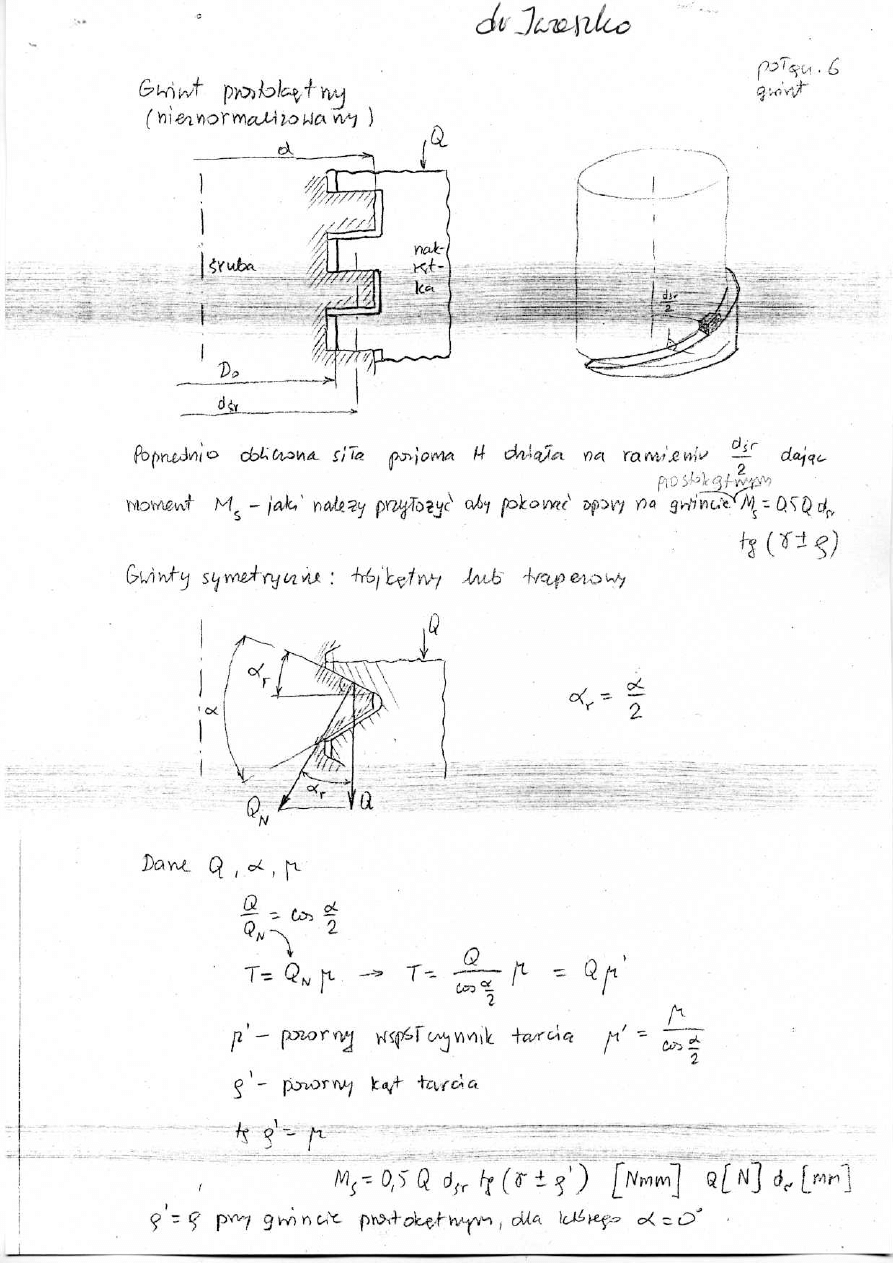 dr Jaroszko
połącz. 6
gwint
Gwint prostokątny
(nieznormalizowany)
d
Q
śruba
nak-
ręt-
ka
dśr/2
D₀
dśr
Poprzednio obliczona siła pozioma H działa na ramieniu dśr/2 dając
prostokątnym
moment Ms – jaki należy przyłożyć aby pokonać opory na gwincie Ms = 0,5 Q dśr
tg (γ ± ρ)
Gwinty symetryczne: trójkątny lub trapezowy
Q
αr
α
αr = α/2
αr
QN
Q
Dane Q, α, μ
Q/QN = cos α/2
T = QN μ → T = Q/cos α/2 μ = Q μ'
μ' – pozorny współczynnik tarcia μ' = μ/cos α/2
ρ' – pozorny kąt tarcia
tg ρ' = μ
Ms = 0,5 Q dśr tg (γ ± ρ') [Nmm] Q[N] dśr[mm]
ρ' = ρ przy gwincie prostokątnym, dla którego α = 0°.